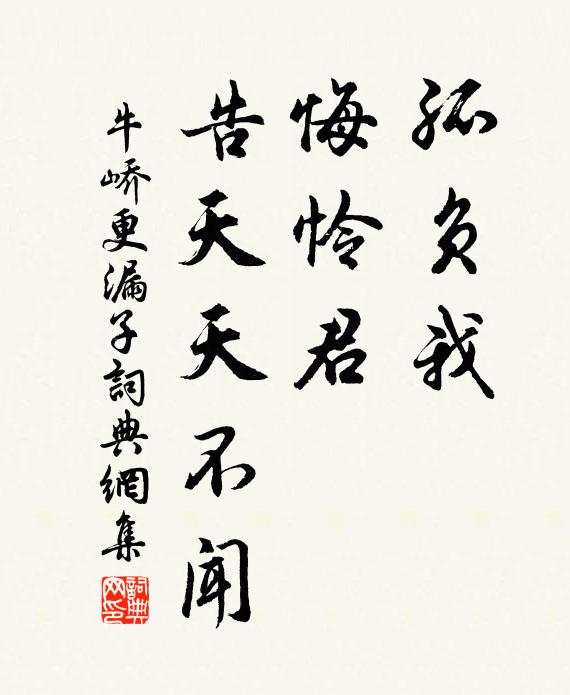 孤负我
悔怜君
告天天不闻
牛峤更漏子詞典網集
詞典网印